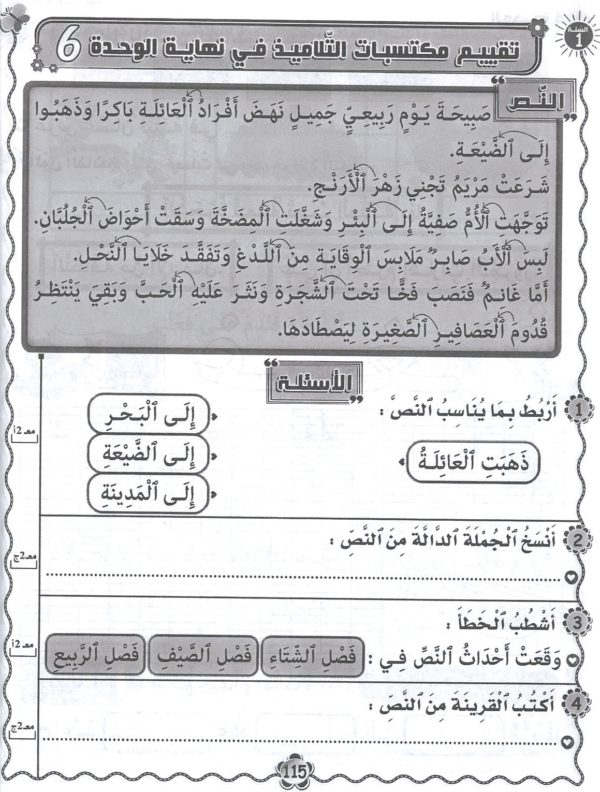 السنة 1
تقييم مكتسبات التّلاميذ في نهاية الوحدة 6
النّص
صَبِيحَةَ يَوْمٍ رَبِيعِيٍّ جَمِيلٍ نَهَضَ أَفْرَادُ ٱلْعَائِلَةِ بَاكِرًا وَذَهَبُوا
إِلَى ٱلضَّيْعَةِ.
شَرَعَتْ مَرْيَمُ تَجْنِي زَهْرَ ٱلْأَرَنْجِ.
تَوَجَّهَتِ ٱلْأُمُّ صَفِيَّةُ إِلَى ٱلْبِئْرِ وَشَغَّلَتِ ٱلْمِضَخَّةَ وَسَقَتْ أَحْوَاضَ ٱلْجُلُبَّانِ.
لَبِسَ ٱلْأَبُ صَابِرٌ مَلَابِسَ ٱلْوِقَايَةِ مِنَ ٱللَّدْغِ وَتَفَقَّدَ خَلَايَا ٱلنَّحْلِ.
أَمَّا غَانِمٌ فَنَصَبَ فَخًّا تَحْتَ ٱلشَّجَرَةِ وَنَثَرَ عَلَيْهِ ٱلْحَبَّ وَبَقِيَ يَنْتَظِرُ
قُدُومَ ٱلْعَصَافِيرِ ٱلصَّغِيرَةِ لِيَصْطَادَهَا.
الأسئلة
1 أَرْبُطُ بِمَا يُنَاسِبُ ٱلنَّصَّ :
إِلَى ٱلْبَحْرِ
ذَهَبَتِ ٱلْعَائِلَةُ
إِلَى ٱلضَّيْعَةِ
إِلَى ٱلْمَدِينَةِ
معـ2أ
2 أَنْسَخُ ٱلْجُمْلَةَ ٱلدَّالَّةَ مِنَ ٱلنَّصِّ :
معـ2ج
3 أَشْطُبُ ٱلْخَطَأَ :
وَقَعَتْ أَحْدَاثُ ٱلنَّصِّ فِي : فَصْلِ ٱلشِّتَاءِ فَصْلِ ٱلصَّيْفِ فَصْلِ ٱلرَّبِيعِ
معـ2أ
4 أَكْتُبُ ٱلْقَرِينَةَ مِنَ ٱلنَّصِّ :
معـ2ج
115